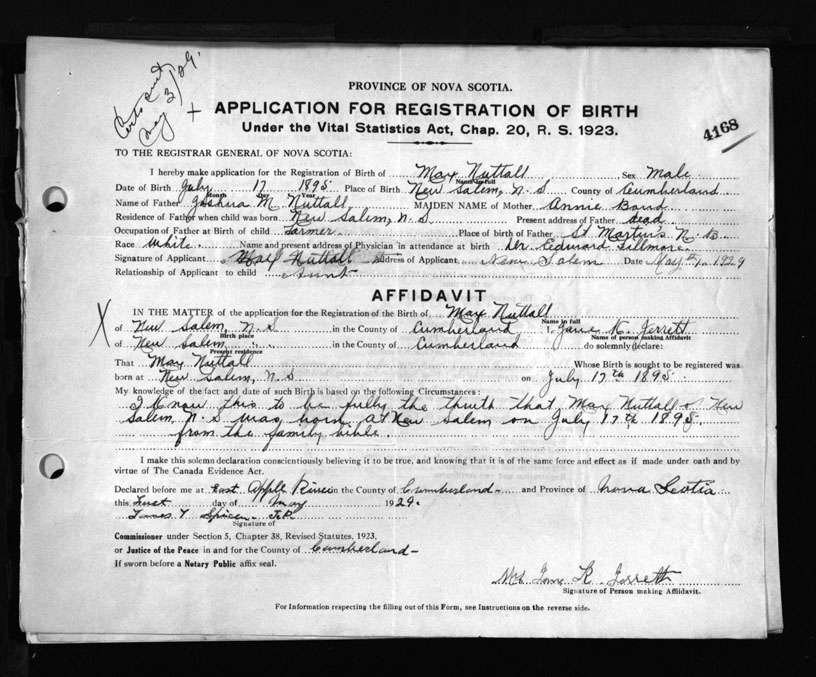 Certs sent
May 3/29.
4168
PROVINCE OF NOVA SCOTIA.
+ APPLICATION FOR REGISTRATION OF BIRTH
Under the Vital Statistics Act, Chap. 20, R. S. 1923.
TO THE REGISTRAR GENERAL OF NOVA SCOTIA:
I hereby make application for the Registration of Birth of May Nuttall Sex Male
Name in full
Date of Birth July 17 1895 Place of Birth New Salem, N. S County of Cumberland
Month Day Year
Name of Father Joshua M. Nuttall MAIDEN NAME of Mother Annie Band
Residence of Father when child was born New Salem, N. S Present address of Father dead
Occupation of Father at Birth of child Farmer Place of birth of Father St Martin's N. B.
Race White. Name and present address of Physician in attendance at birth Dr. Edward Fillmore
Signature of Applicant Nuttall Address of Applicant, New Salem Date May 1929
Relationship of Applicant to child Aunt
AFFIDAVIT
X IN THE MATTER of the application for the Registration of Birth of May Nuttall
Name in full
of New Salem, N. S in the County of Cumberland I, Jane K. Jerrett
Birth place Name of person making Affidavit
of New Salem, " " in the County of Cumberland do solemnly declare:
Present residence
That May Nuttall Whose Birth is sought to be registered was
born at New Salem, N. S on July 17th 1895
My knowledge of the fact and date of such Birth is based on the following Circumstances:
I know this to be fully the thruth that May Nuttall of New
Salem, N. S was born at New Salem on July 17th 1895.
from the family bible.
I make this solemn declaration conscientiously believing it to be true, and knowing that it is of the same force and effect as if made under oath and by
virtue of The Canada Evidence Act.
Declared before me at East Apple River in the County of Cumberland and Province of Nova Scotia
this First day of May 1929.
James Y Spicer J.P.
Signature of
Commissioner under Section 5, Chapter 38, Revised Statutes, 1923,
or Justice of the Peace in and for the County of Cumberland
If sworn before a Notary Public affix seal.
Mrs Jane K. Jerrett
Signature of Person making Affidavit.
For Information respecting the filling out of this Form, see Instructions on the reverse side.